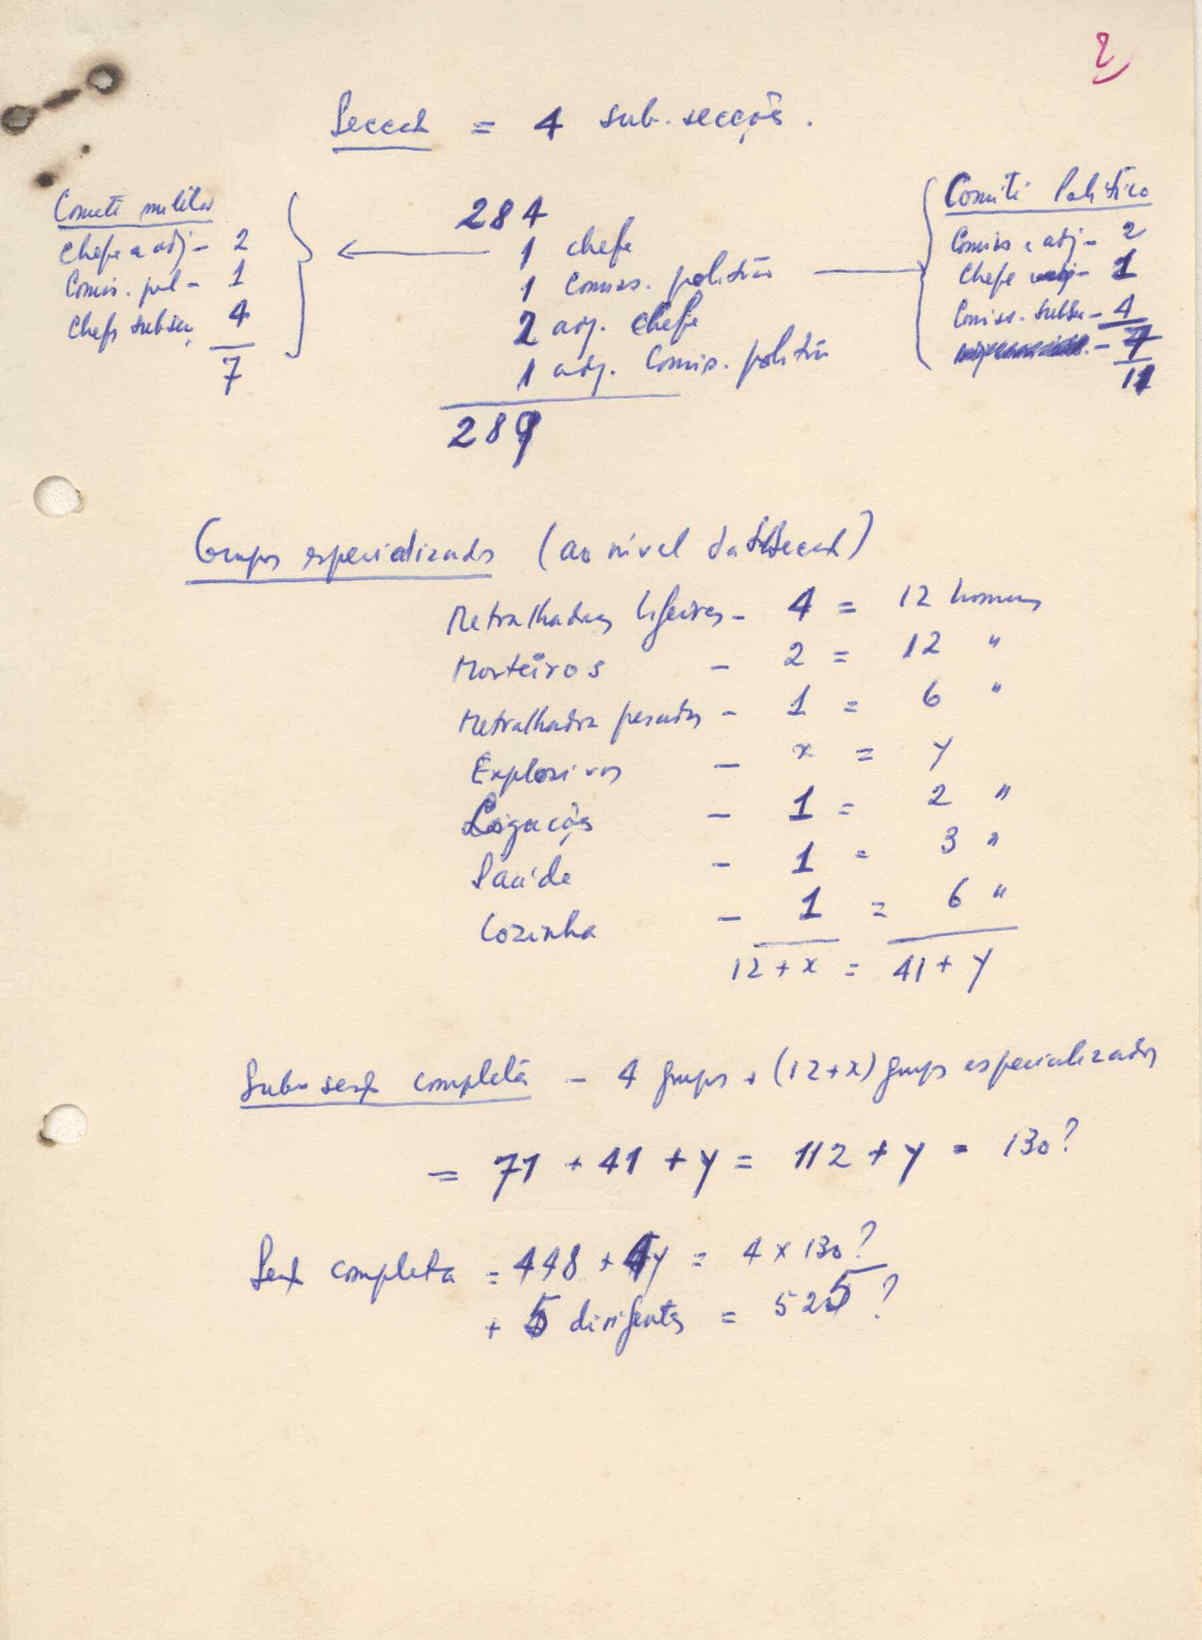 2
Secçã = 4 sub-secções.
Comité militar
Chefe e adj - 2
Comis. pol - 1
Chefs subsec. 4
7
284
1 chefe
1 comiss. político
2 adj. chefe
1 adj. comis. político
289
Comité Político
Comiss e adj - 2
Chefe - 1
Comiss. subsec - 4
- 7
11
Grupos especializados (ao nível da Secçã)
Metralhadoras ligeiras - 4 = 12 homens
Morteiros - 2 = 12 "
Metralhadora pesadas - 1 = 6 "
Explosivos - x = y
Ligações - 1 = 2 "
Saúde - 1 = 3 "
Cozinha - 1 = 6 "
12 + x = 41 + y
Sub-secç completa - 4 grupos + (12+x) grups especializados
= 71 + 41 + y = 112 + y = 130?
Secç completa = 448 + 4y = 4 x 130?
+ 5 dirigentes = 525?